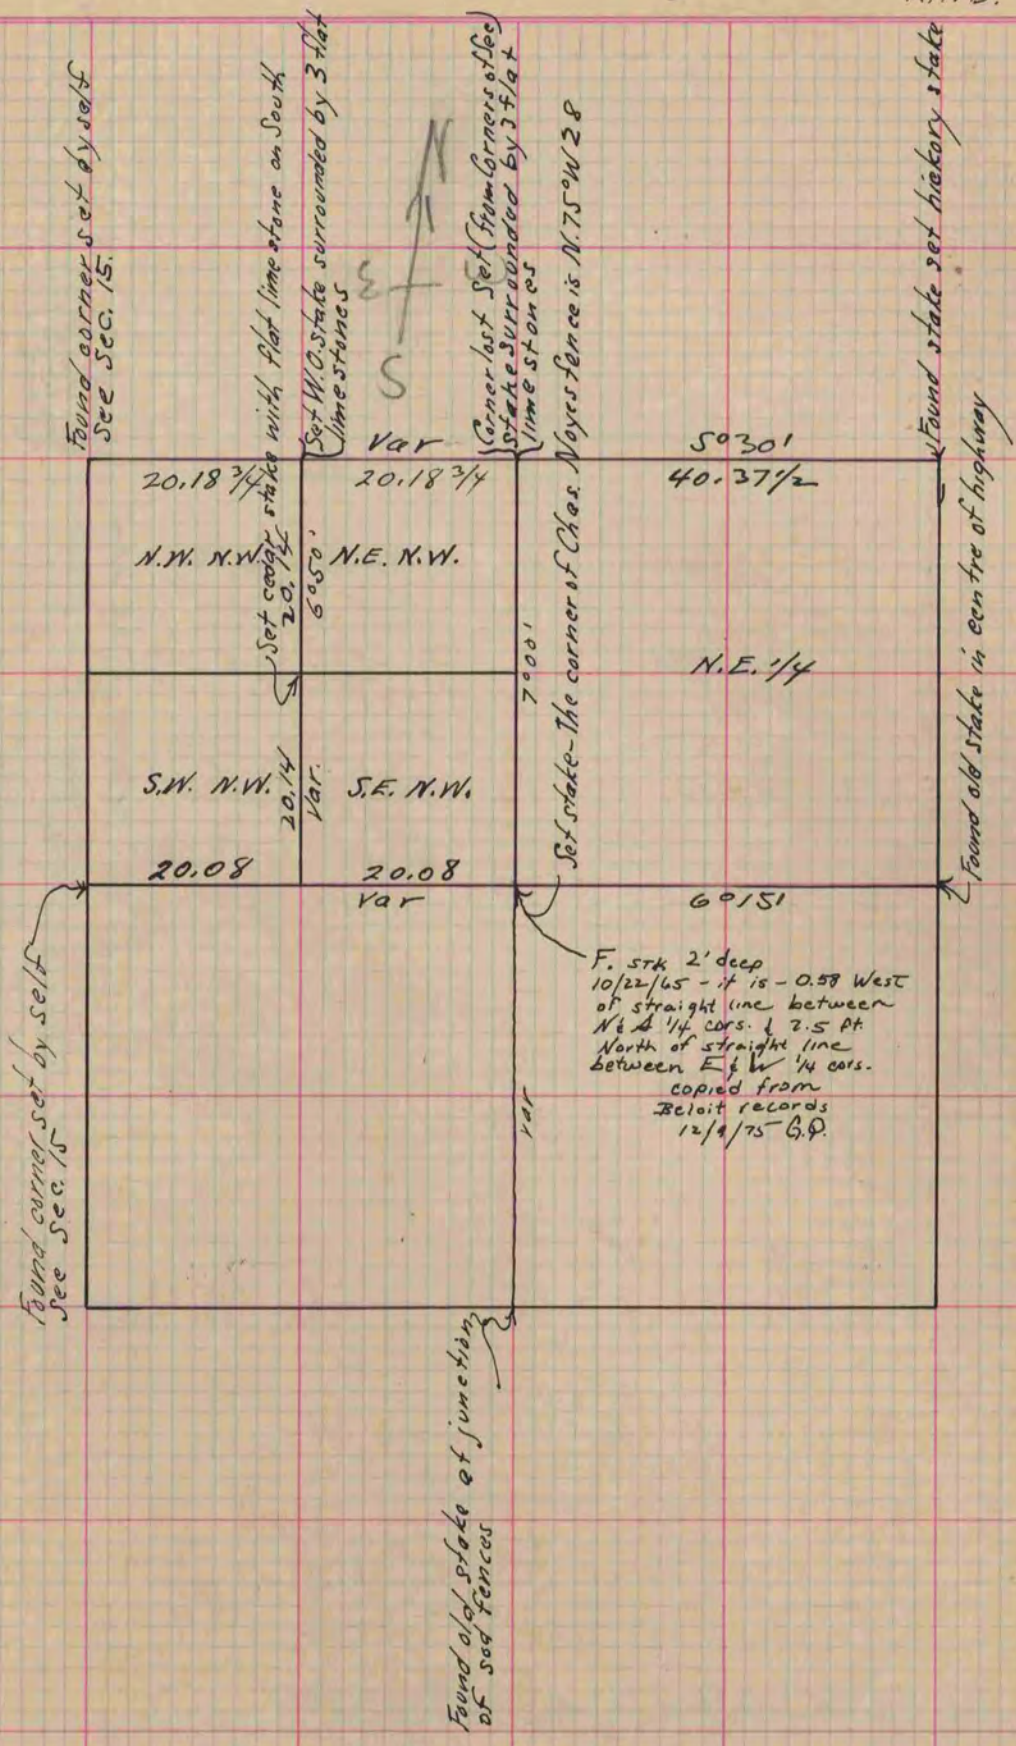 Found corner set by self
See Sec. 15.
Set cedar stake with flat lime stone on South
Set W.O. stake surrounded by 3 flat
lime stones
N
E
S
Corner lost Set (from Corners of Sec)
stake surrounded by 3 flat
lime stones
Set stake-The corner of Chas. Noyes fence is N.75°W 28
Found stake set hickory stake
Found old stake in centre of highway
Var
5°30'
20.18 3/4
20.18 3/4
40.37 1/2
N.W. N.W.
20.14
6°50'
N.E. N.W.
7°00'
N.E. 1/4
S.W. N.W.
20.14
Var.
S.E. N.W.
20.08
20.08
Var
6°15'
Found corner set by self
See Sec. 15
F. STK 2' deep
10/22/65 - it is - 0.58 West
of straight line between
N & S 1/4 cors. & 2.5 ft.
North of straight line
between E & W 1/4 cors.
copied from
Beloit records
12/9/75 G.P.
Var
Found old stake at junction
of sod fences